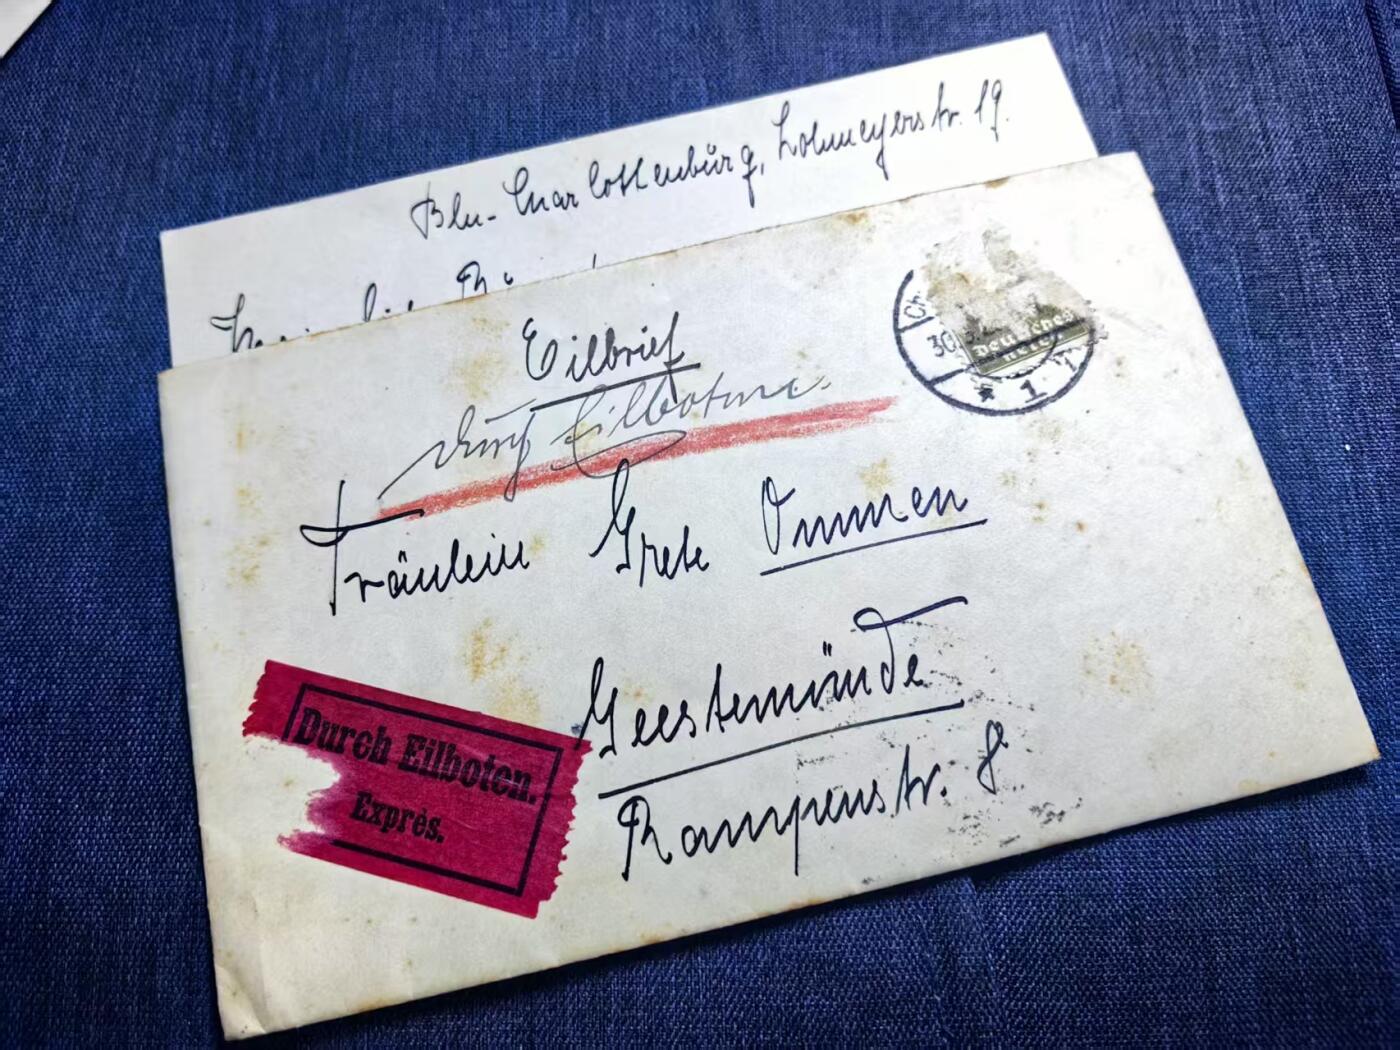 Bln-Charlottenburg, Lohmeyerstr. 19.
Eilbrief
durch Eilboten.
Ch.
30
Deutsches
Reich
* 1
Fräulein Grete Ommen
Geestemünde
Rampenstr. 8
Durch Eilboten.
Exprès.